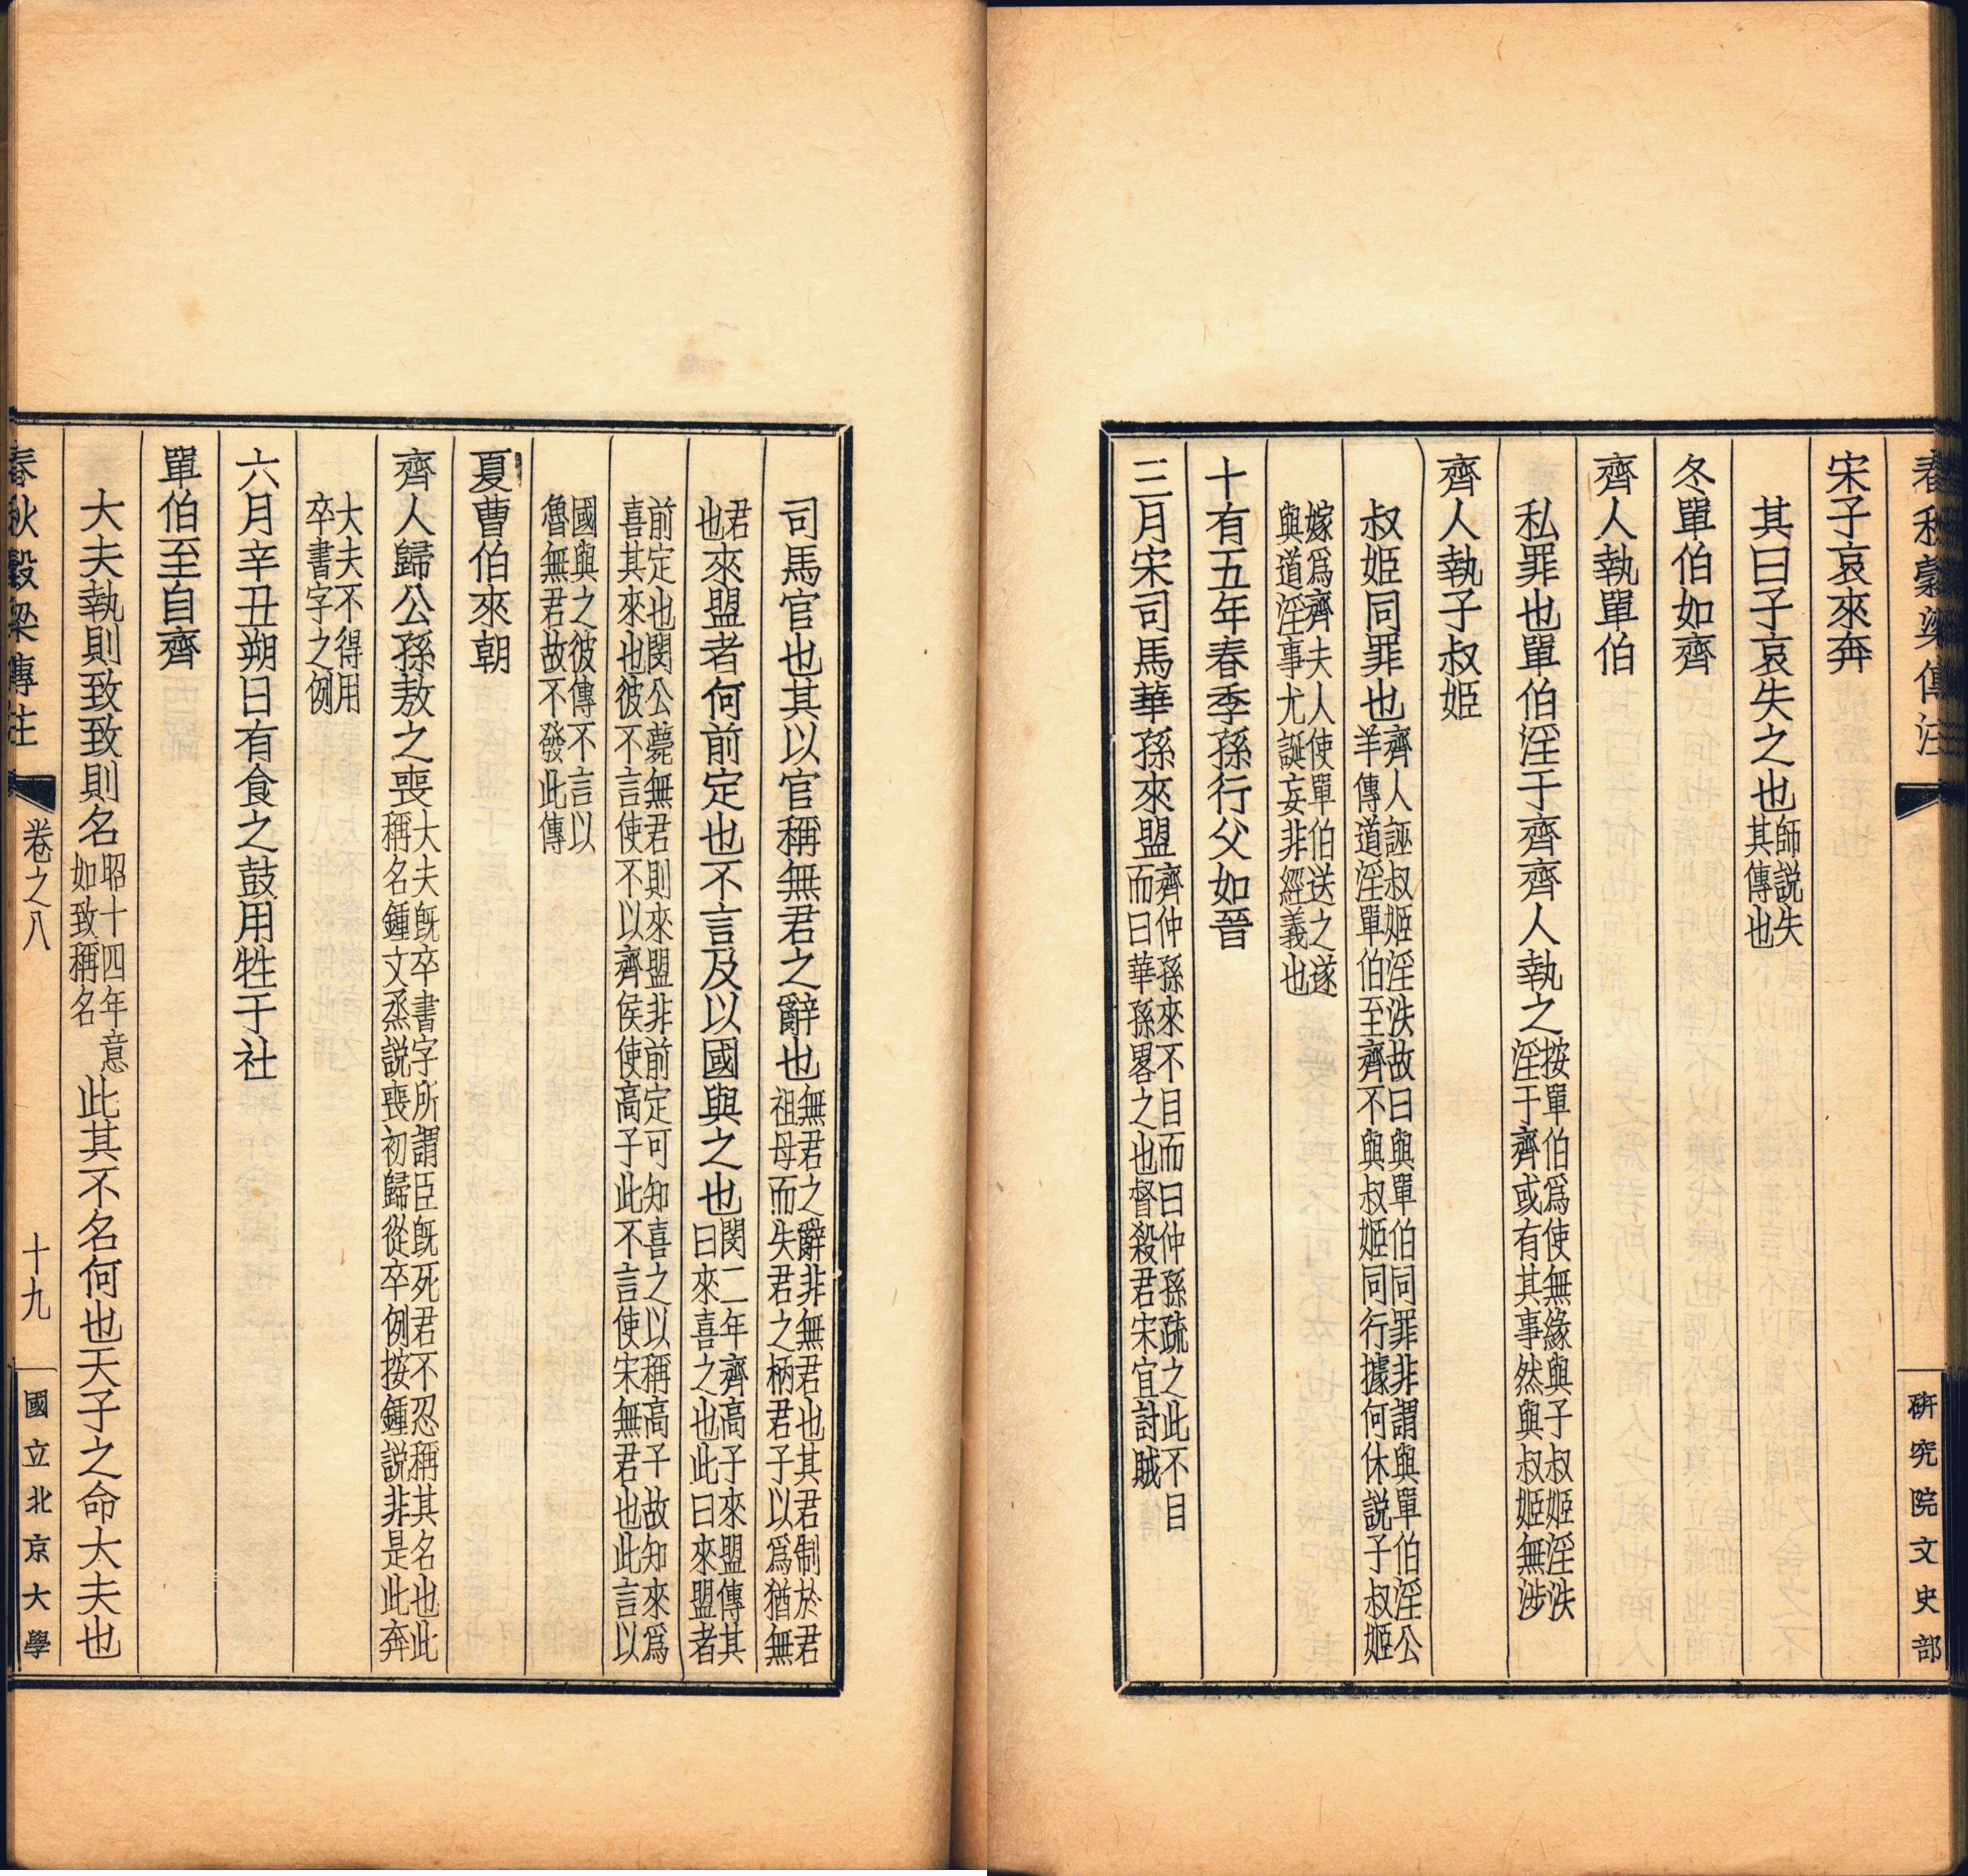 春秋穀梁傳注
研究院文史部
宋子哀來奔
其曰子哀失之也師説失
其傳也
冬單伯如齊
齊人執單伯
私罪也單伯淫于齊齊人執之按單伯爲使無緣與子叔姬淫泆
淫于齊或有其事然與叔姬無涉
齊人執子叔姬
叔姬同罪也齊人誣叔姬淫泆故曰與單伯同罪非謂與單伯淫公
羊傳道淫單伯至齊不與叔姬同行據何休説子叔姬
嫁爲齊夫人使單伯送之遂
與道淫事尤誕妄非經義也
十有五年春季孫行父如晉
三月宋司馬華孫來盟齊仲孫來不目而曰仲孫疏之此不目
而曰華孫畧之也督殺君宋宜討賊
司馬官也其以官稱無君之辭也無君之辭非無君也其君制於君
祖母而失君之柄君子以爲猶無
君
也來盟者何前定也不言及以國與之也閔二年齊高子來盟傳其
曰來喜之也此曰來盟者
前定也閔公薨無君則來盟非前定可知喜之以稱高子故知來爲
喜其來也彼不言使不以齊侯使高子此不言使宋無君也此言以
國與之彼傳不言以
魯無君故不發此傳
夏曹伯來朝
齊人歸公孫敖之喪大夫旣卒書字所謂臣旣死君不忍稱其名也此
稱名鍾文烝説喪初歸從卒例按鍾説非是此奔
大夫不得用
卒書字之例
六月辛丑朔日有食之鼓用牲于社
單伯至自齊
大夫執則致致則名昭十四年意
如致稱名此其不名何也天子之命大夫也
春秋穀梁傳注
卷之八
十九
國立北京大學